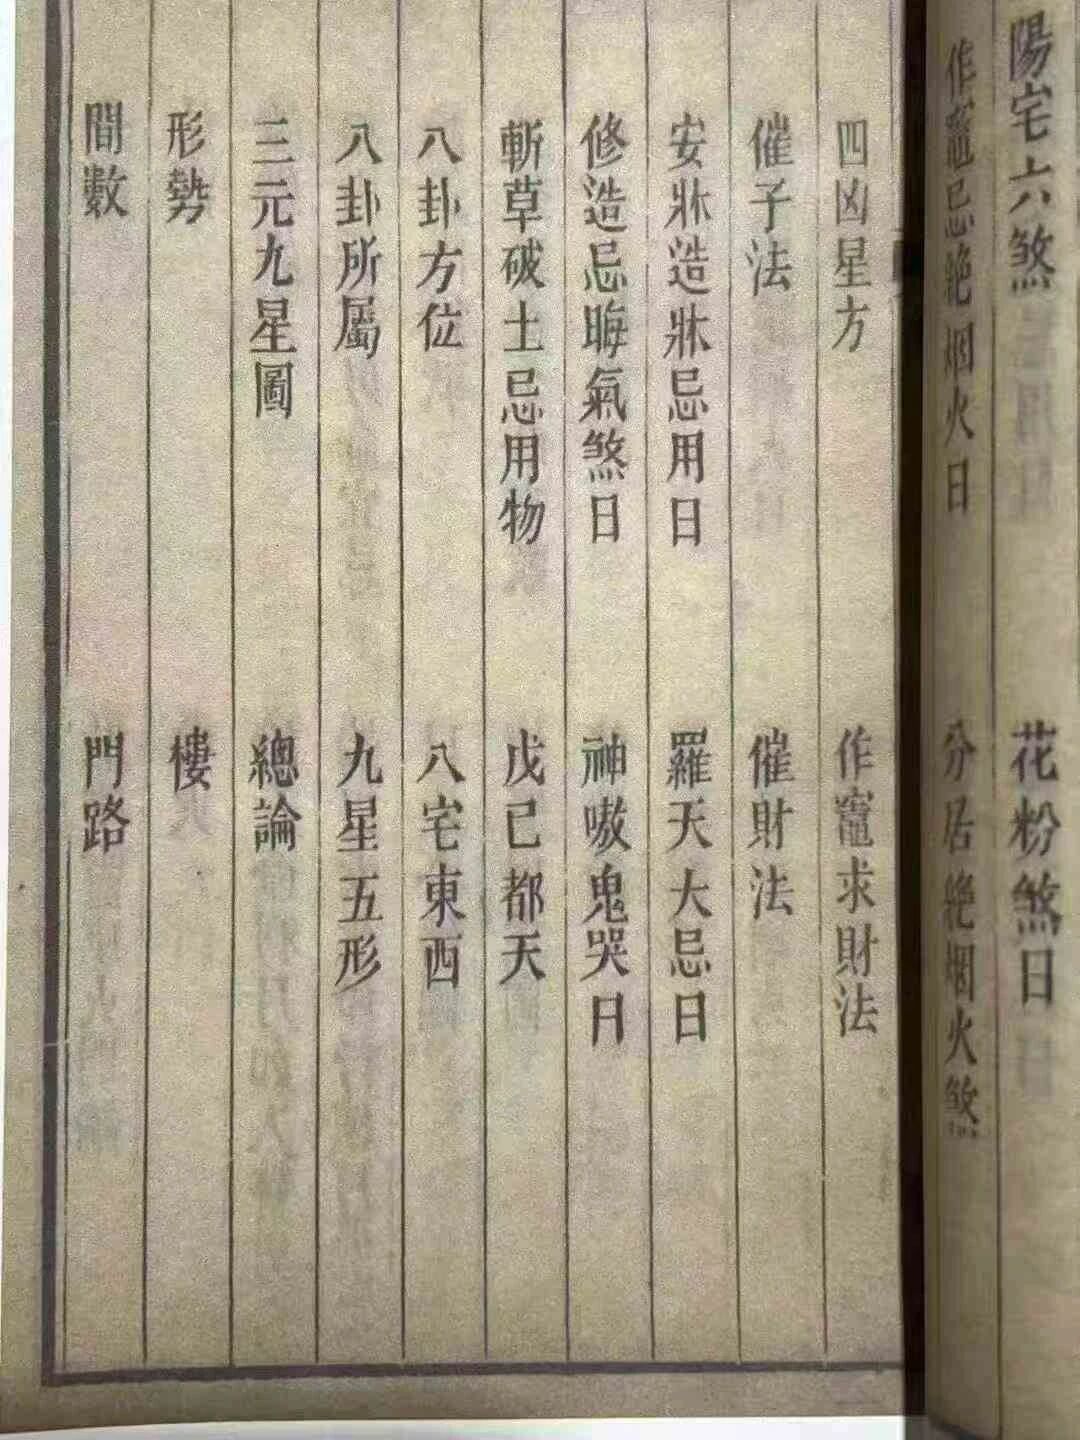 陽宅六煞　花粉煞日
作竈忌絶烟火日　分居絶烟火煞
四凶星方　作竈求財法
催子法　催財法
安牀造牀忌用日　羅天大忌日
修造忌晦氣煞日　神嗷鬼哭日
斬草破土忌用物　戊己都天
八卦方位　八宅東西
八卦所屬　九星五形
三元九星圖　總論
形勢　樓
間數　門路